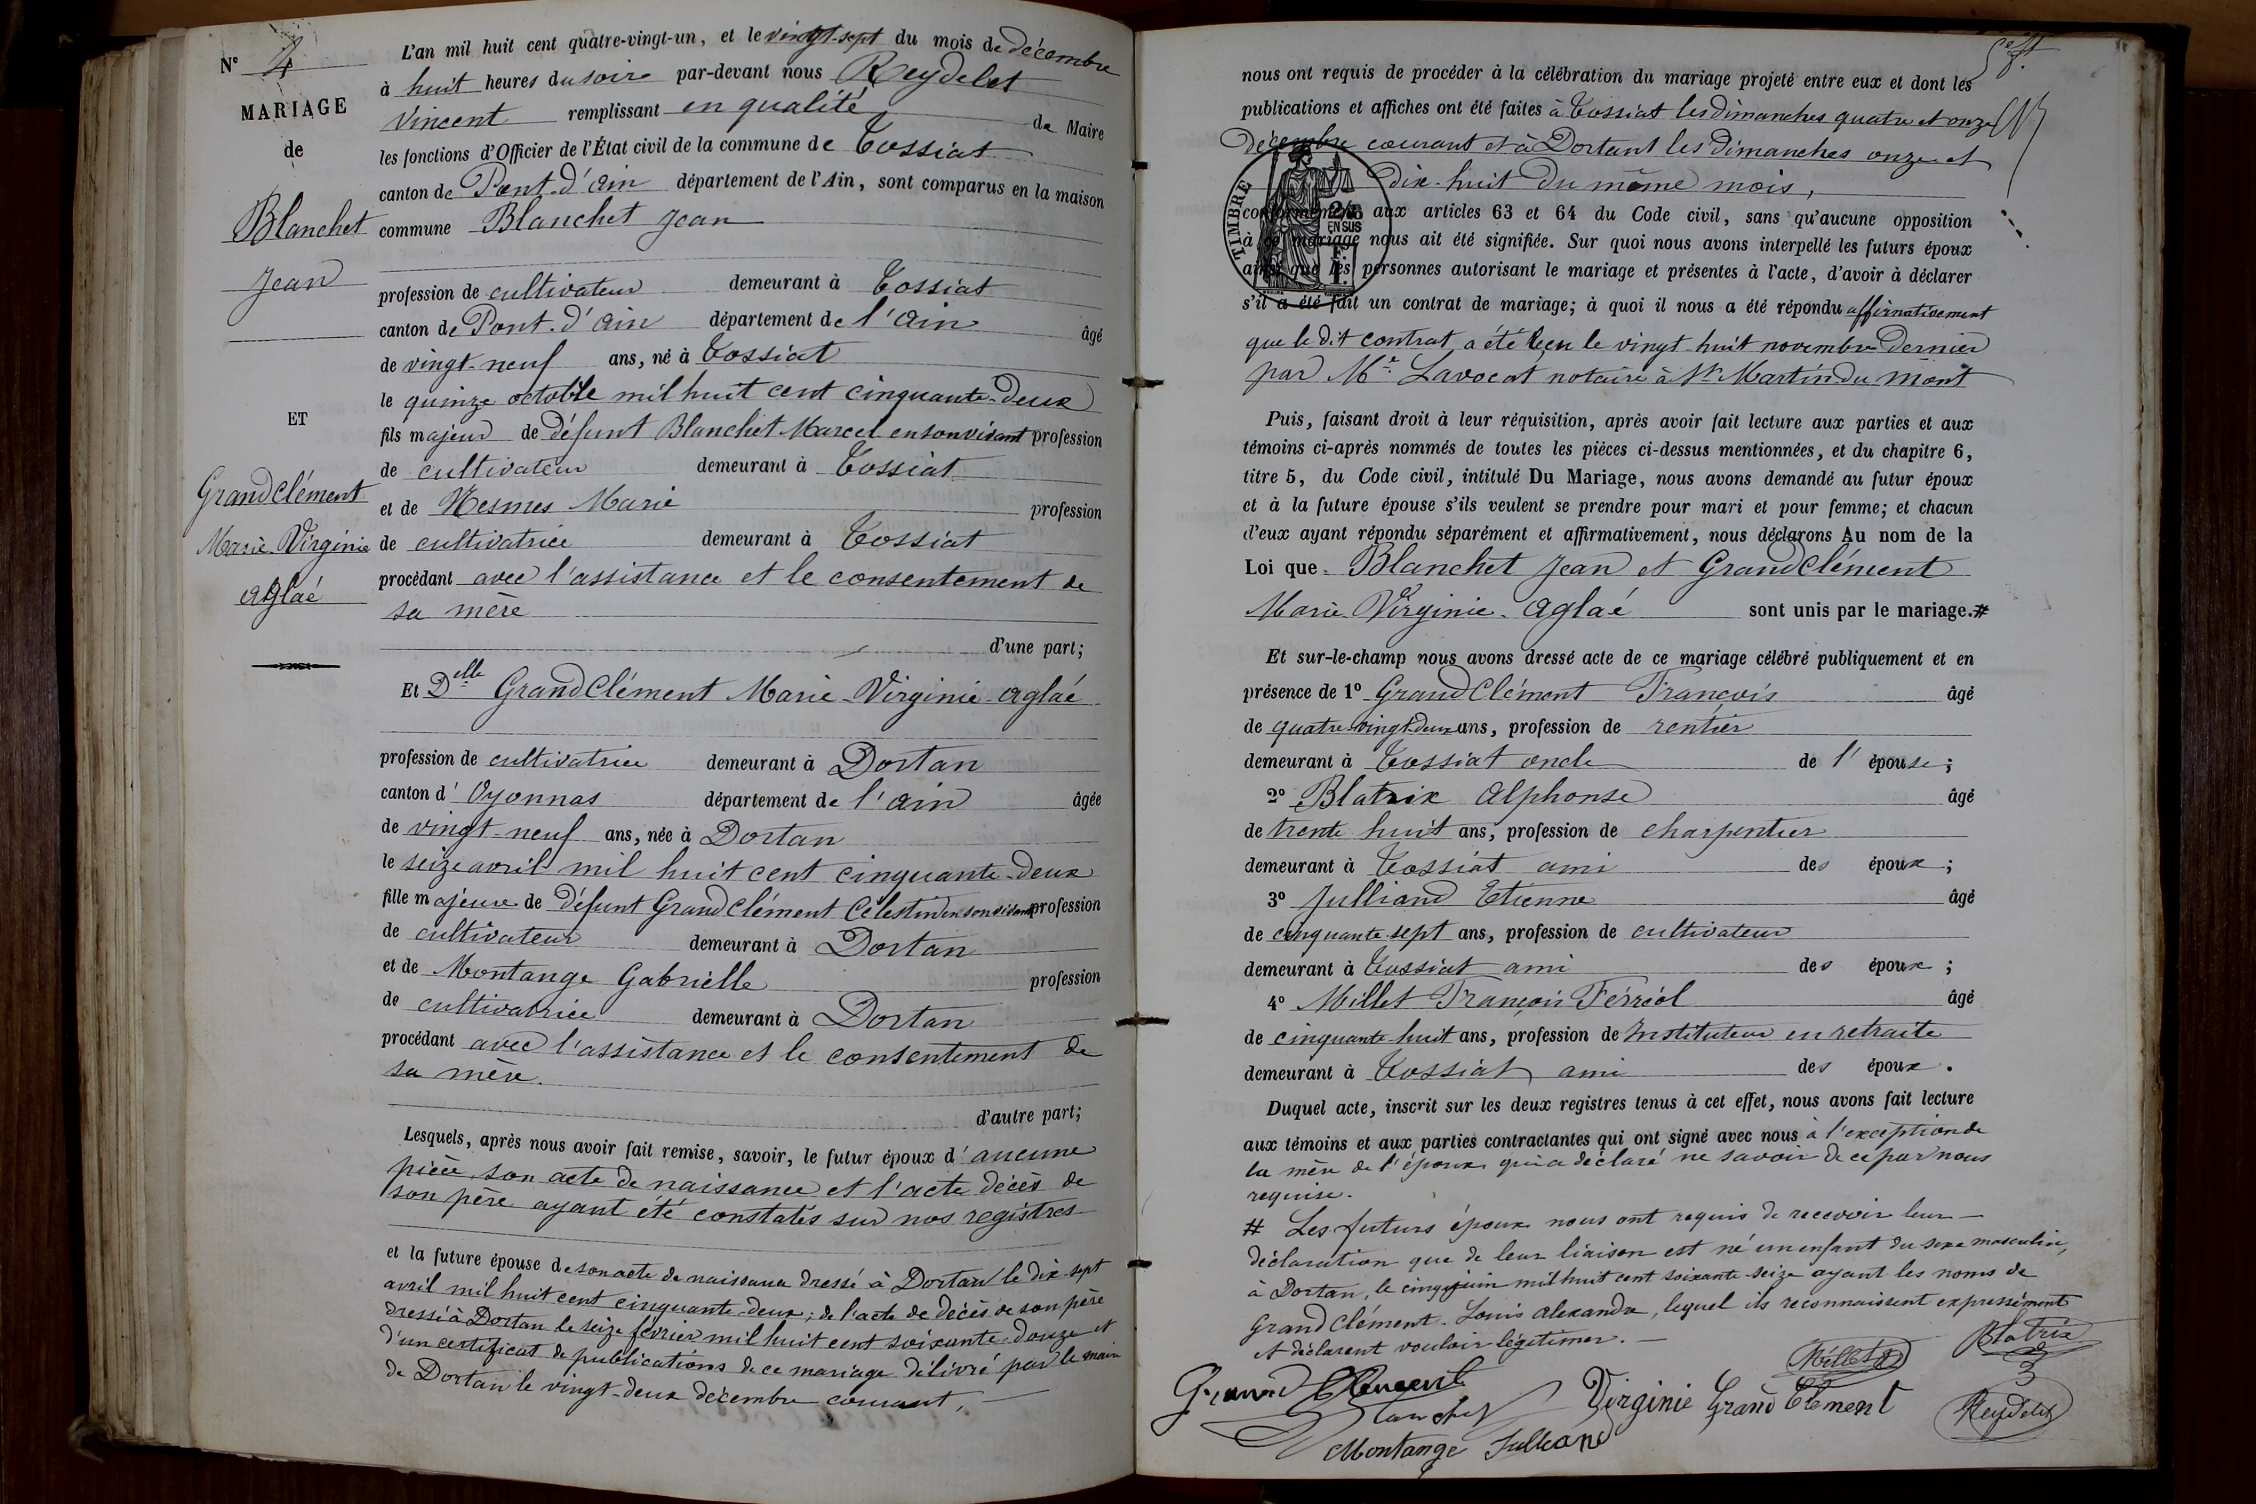 N° 4
MARIAGE
de
Blanchet
Jean
ET
Grandclément
Marie Virginie
Aglaé
L'an mil huit cent quatre-vingt-un, et le vingt-sept du mois de décembre
à huit heures du soir par-devant nous Reydelet
Vincent remplissant en qualité de Maire
les fonctions d'Officier de l'État civil de la commune de Tossiat
canton de Pont-d'Ain département de l'Ain, sont comparus en la maison
commune Blanchet Jean
profession de cultivateur demeurant à Tossiat
canton de Pont-d'Ain département de l'Ain âgé
de vingt-neuf ans, né à Tossiat
le quinze octobre mil huit cent cinquante-deux
fils majeur de défunt Blanchet Marcel en son vivant profession
de cultivateur demeurant à Tossiat
et de Mesmes Marie profession
de cultivatrice demeurant à Tossiat
procédant avec l'assistance et le consentement de
sa mère
d'une part;
Et Delle Grandclément Marie-Virginie-Aglaé
profession de cultivatrice demeurant à Dortan
canton d'Oyonnas département de l'Ain âgée
de vingt-neuf ans, née à Dortan
le seize avril mil huit cent cinquante-deux
fille majeure de défunt Grandclément Célestin en son vivant profession
de cultivateur demeurant à Dortan
et de Montange Gabrielle profession
de cultivatrice demeurant à Dortan
procédant avec l'assistance et le consentement de
sa mère.
d'autre part;
Lesquels, après nous avoir fait remise, savoir, le futur époux d'aucune
pièce, son acte de naissance et l'acte décès de
son père ayant été constatés sur nos registres
et la future épouse de son acte de naissance dressé à Dortan le dix-sept
avril mil huit cent cinquante-deux; de l'acte de décès de son père
dressé à Dortan le seize février mil huit cent soixante-douze et
d'un certificat de publications de ce mariage délivré par le maire
de Dortan le vingt-deux décembre courant,
nous ont requis de procéder à la célébration du mariage projeté entre eux et dont les
publications et affiches ont été faites à Tossiat les dimanches quatre et onze
décembre courant et à Dortant les dimanches onze et
dix-huit du même mois,
TIMBRE
2/10
EN SUS
conformément aux articles 63 et 64 du Code civil, sans qu'aucune opposition
à ce mariage nous ait été signifiée. Sur quoi nous avons interpellé les futurs époux
ainsi que les personnes autorisant le mariage et présentes à l'acte, d'avoir à déclarer
s'il a été fait un contrat de mariage; à quoi il nous a été répondu affirmativement
que le dit contrat a été reçu le vingt-huit novembre dernier
par Me Lavocat notaire à St Martin du Mont
Puis, faisant droit à leur réquisition, après avoir fait lecture aux parties et aux
témoins ci-après nommés de toutes les pièces ci-dessus mentionnées, et du chapitre 6,
titre 5, du Code civil, intitulé Du Mariage, nous avons demandé au futur époux
et à la future épouse s'ils veulent se prendre pour mari et pour femme; et chacun
d'eux ayant répondu séparément et affirmativement, nous déclarons Au nom de la
Loi que Blanchet Jean et Grandclément
Marie Virginie-Aglaé sont unis par le mariage.#
Et sur-le-champ nous avons dressé acte de ce mariage célébré publiquement et en
présence de 1° Grandclément François âgé
de quatre-vingt-deux ans, profession de rentier
demeurant à Tossiat oncle de l'épouse;
2° Blatrix Alphonse âgé
de trente huit ans, profession de charpentier
demeurant à Tossiat ami des époux;
3° Julliand Etienne âgé
de cinquante-sept ans, profession de cultivateur
demeurant à Tossiat ami des époux;
4° Millet François Férréol âgé
de cinquante-huit ans, profession de Instituteur en retraite
demeurant à Tossiat ami des époux.
Duquel acte, inscrit sur les deux registres tenus à cet effet, nous avons fait lecture
aux témoins et aux parties contractantes qui ont signé avec nous à l'exception de
la mère de l'époux qui a déclaré ne savoir de ce par nous
requise.
# Les futurs époux nous ont requis de recevoir leur
déclaration que de leur liaison est né un enfant du sexe masculin,
à Dortan, le cinq juin mil huit cent soixante-seize ayant les noms de
Grandclément-Louis Alexandre, lequel ils reconnaissent expressément
et déclarent vouloir légitimer.
Millet Blatrix
Grand Clement
Blanchet Virginie Grand Clement Reydelet
Montange Julliand